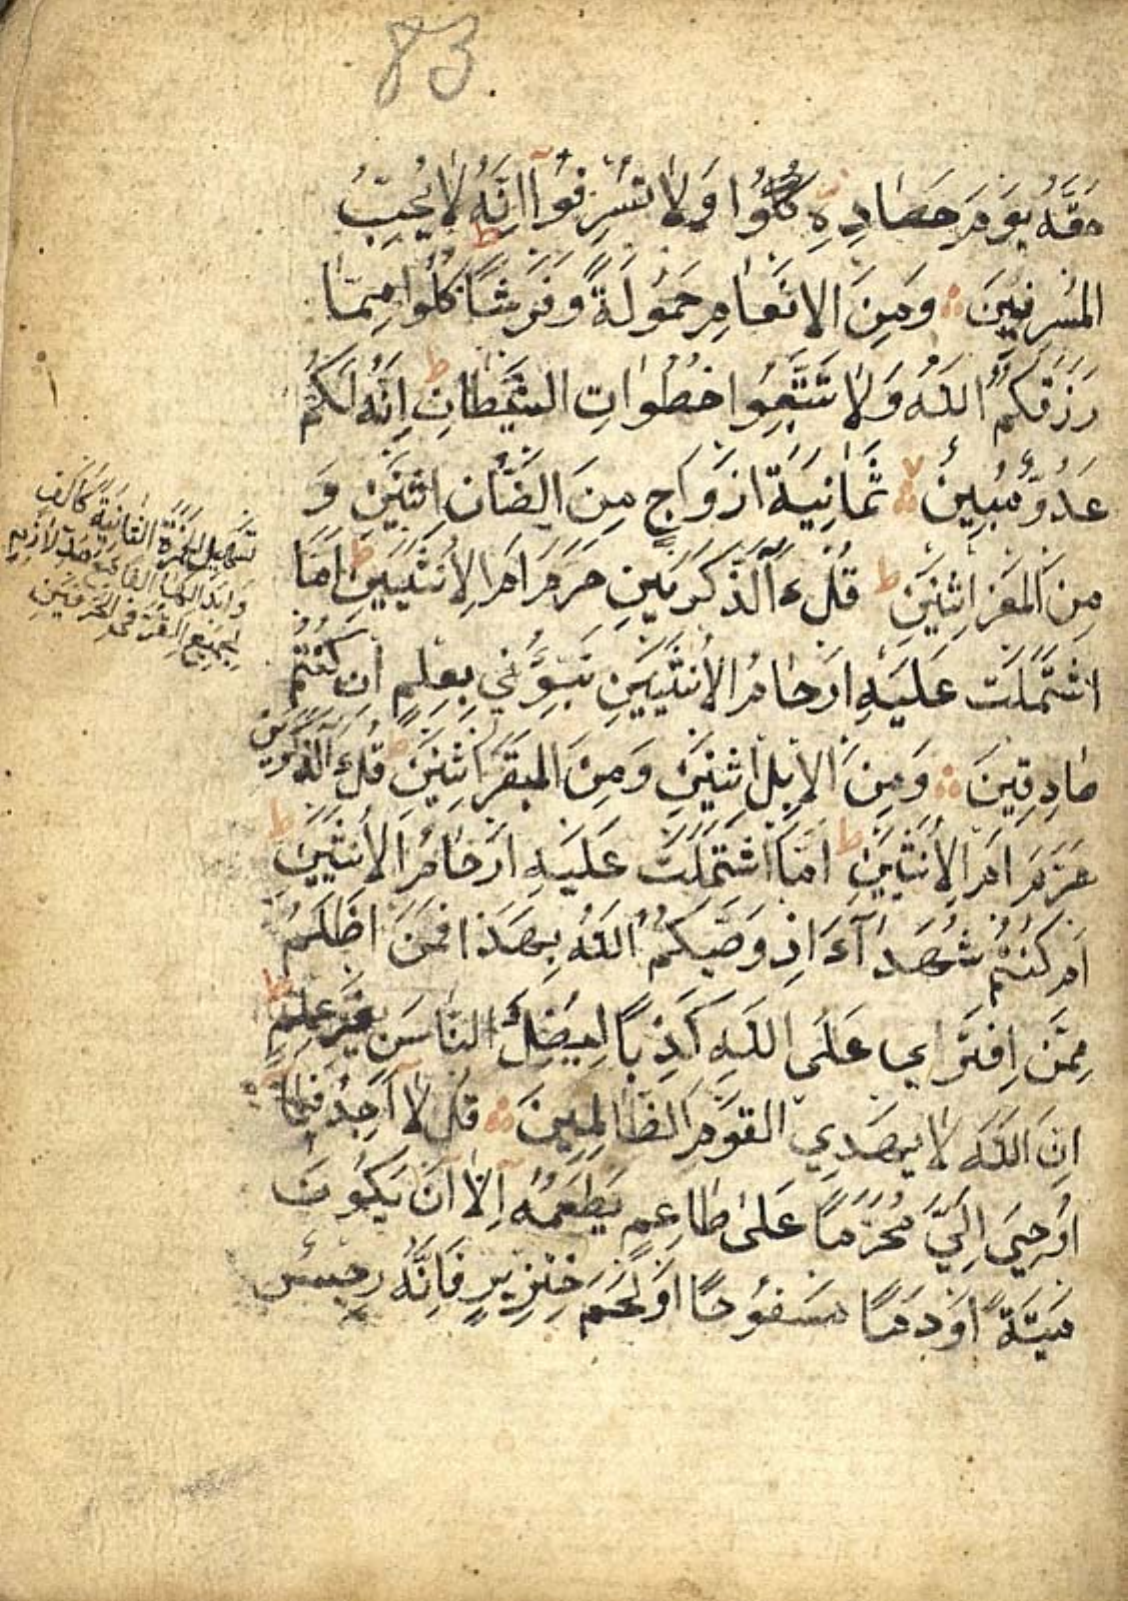 83
حَقَّهُ يَوْمَ حَصَادِهِ كُلُوا وَلَا تُسْرِفُوا اِنَّهُ لَا يُحِبُّ
الْمُسْرِفِينَ وَمِنَ الْاَنْعَامِ حَمُولَةً وَفَرْشًا ط كُلُوا مِمَّا
رَزَقَكُمُ اللّٰهُ وَلَا تَتَّبِعُوا خُطُوَاتِ الشَّيْطَانِ ط اِنَّهُ لَكُمْ
عَدُوٌّ مُبِينٌ لا ثَمَانِيَةَ اَزْوَاجٍ مِنَ الضَّأْنِ اثْنَيْنِ وَ
مِنَ الْمَعْزِ اثْنَيْنِ ط قُلْ ءَآلذَّكَرَيْنِ حَرَّمَ اَمِ الْاُنْثَيَيْنِ ط اَمَّا
اشْتَمَلَتْ عَلَيْهِ اَرْحَامُ الْاُنْثَيَيْنِ نَبِّؤُنِي بِعِلْمٍ اِنْ كُنْتُمْ
صَادِقِينَ وَمِنَ الْاِبِلِ اثْنَيْنِ وَمِنَ الْبَقَرِ اثْنَيْنِ قُلْ ءَآلذَّكَرَيْنِ
حَرَّمَ اَمِ الْاُنْثَيَيْنِ ط اَمَّا اشْتَمَلَتْ عَلَيْهِ اَرْحَامُ الْاُنْثَيَيْنِ ط
اَمْ كُنْتُمْ شُهَدَآءَ اِذْ وَصّٰيكُمُ اللّٰهُ بِهَذَا فَمَنْ اَظْلَمُ
مِمَّنِ افْتَرٰي عَلَى اللّٰهِ كَذِبًا لِيُضِلَّ النَّاسَ بِغَيْرِ عِلْمٍ ط
اِنَّ اللّٰهَ لَا يَهْدِي الْقَوْمَ الظَّالِمِينَ قُلْ لَا اَجِدُ فِيمَا
اُوحِيَ اِلَيَّ مُحَرَّمًا عَلَى طَاعِمٍ يَطْعَمُهُ اِلَّا اَنْ يَكُونَ
مَيْتَةً اَوْ دَمًا مَسْفُوحًا اَوْ لَحْمَ خِنْزِيرٍ فَاِنَّهُ رِجْسٌ
تسهيل الهمزة الثانية كالف
وابدالها الفا
لجميع القراء في الحرفين